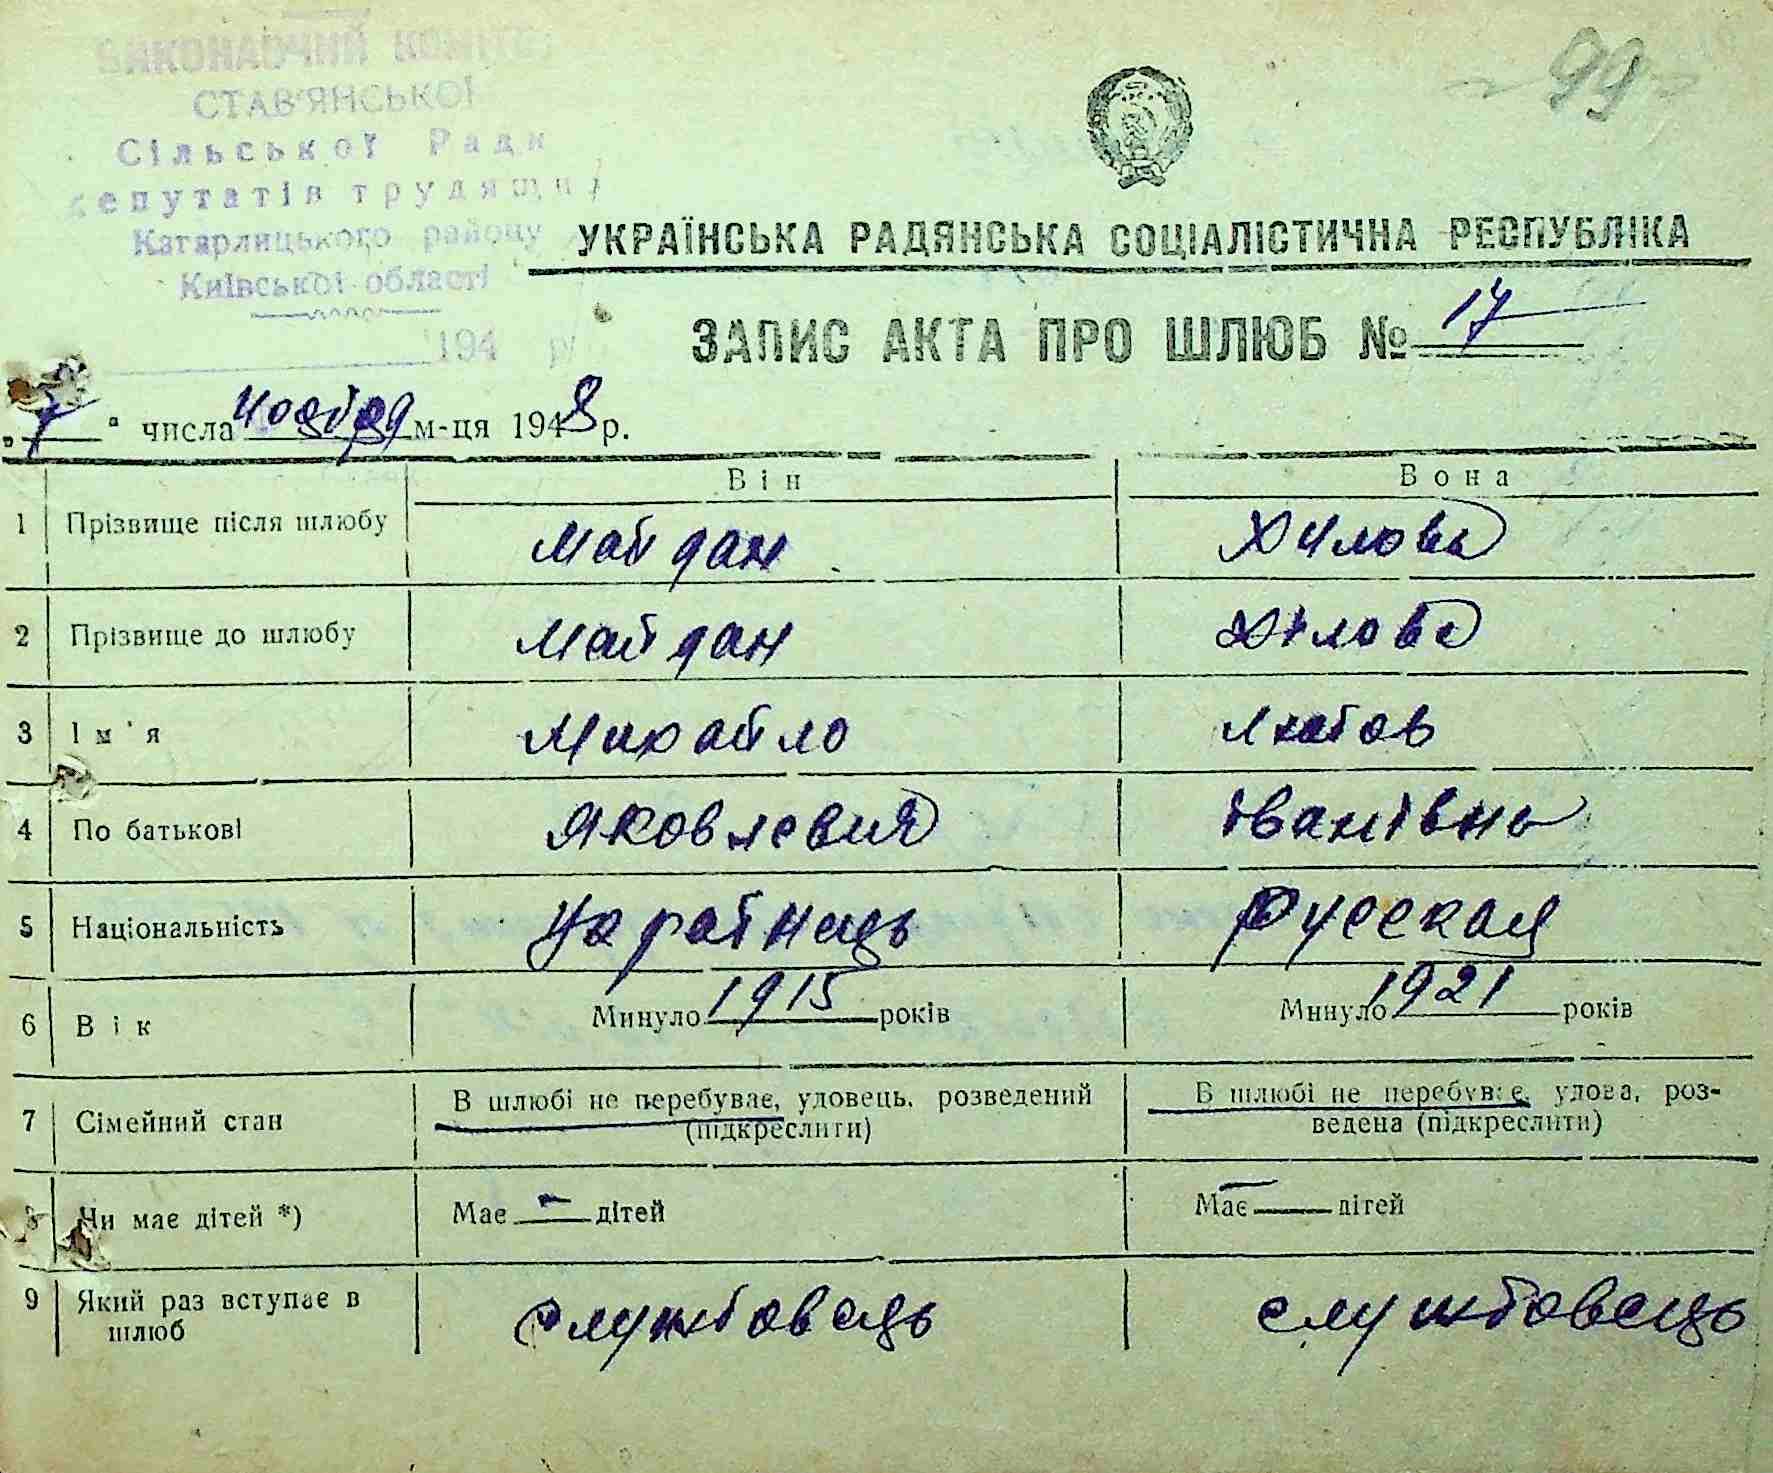 ВИКОНАВЧИЙ КОМІТЕ
СТАВ'ЯНСЬКОЇ
Сільської Ради
депутатів трудящи
Кагарлицького району
Київської області
194 р.
99
УКРАЇНСЬКА РАДЯНСЬКА СОЦІАЛІСТИЧНА РЕСПУБЛІКА
ЗАПИС АКТА ПРО ШЛЮБ № 17
„7“ числа ноября м-ця 1948 р.
Він Вона
1 Прізвище після шлюбу Майдан Хилова
2 Прізвище до шлюбу Майдан Хілова
3 Ім'я Михайло Любов
4 По батькові Яковлевич Іванівна
5 Національність Украінець Русская
6 Вік Минуло 1915 років Минуло 1921 років
7 Сімейний стан В шлюбі не перебуває, удовець, розведений (підкреслити) В шлюбі не перебуває, удова, розведена (підкреслити)
8 Чи має дітей *) Має — дітей Має — дітей
9 Який раз вступає в шлюб службовець службовець